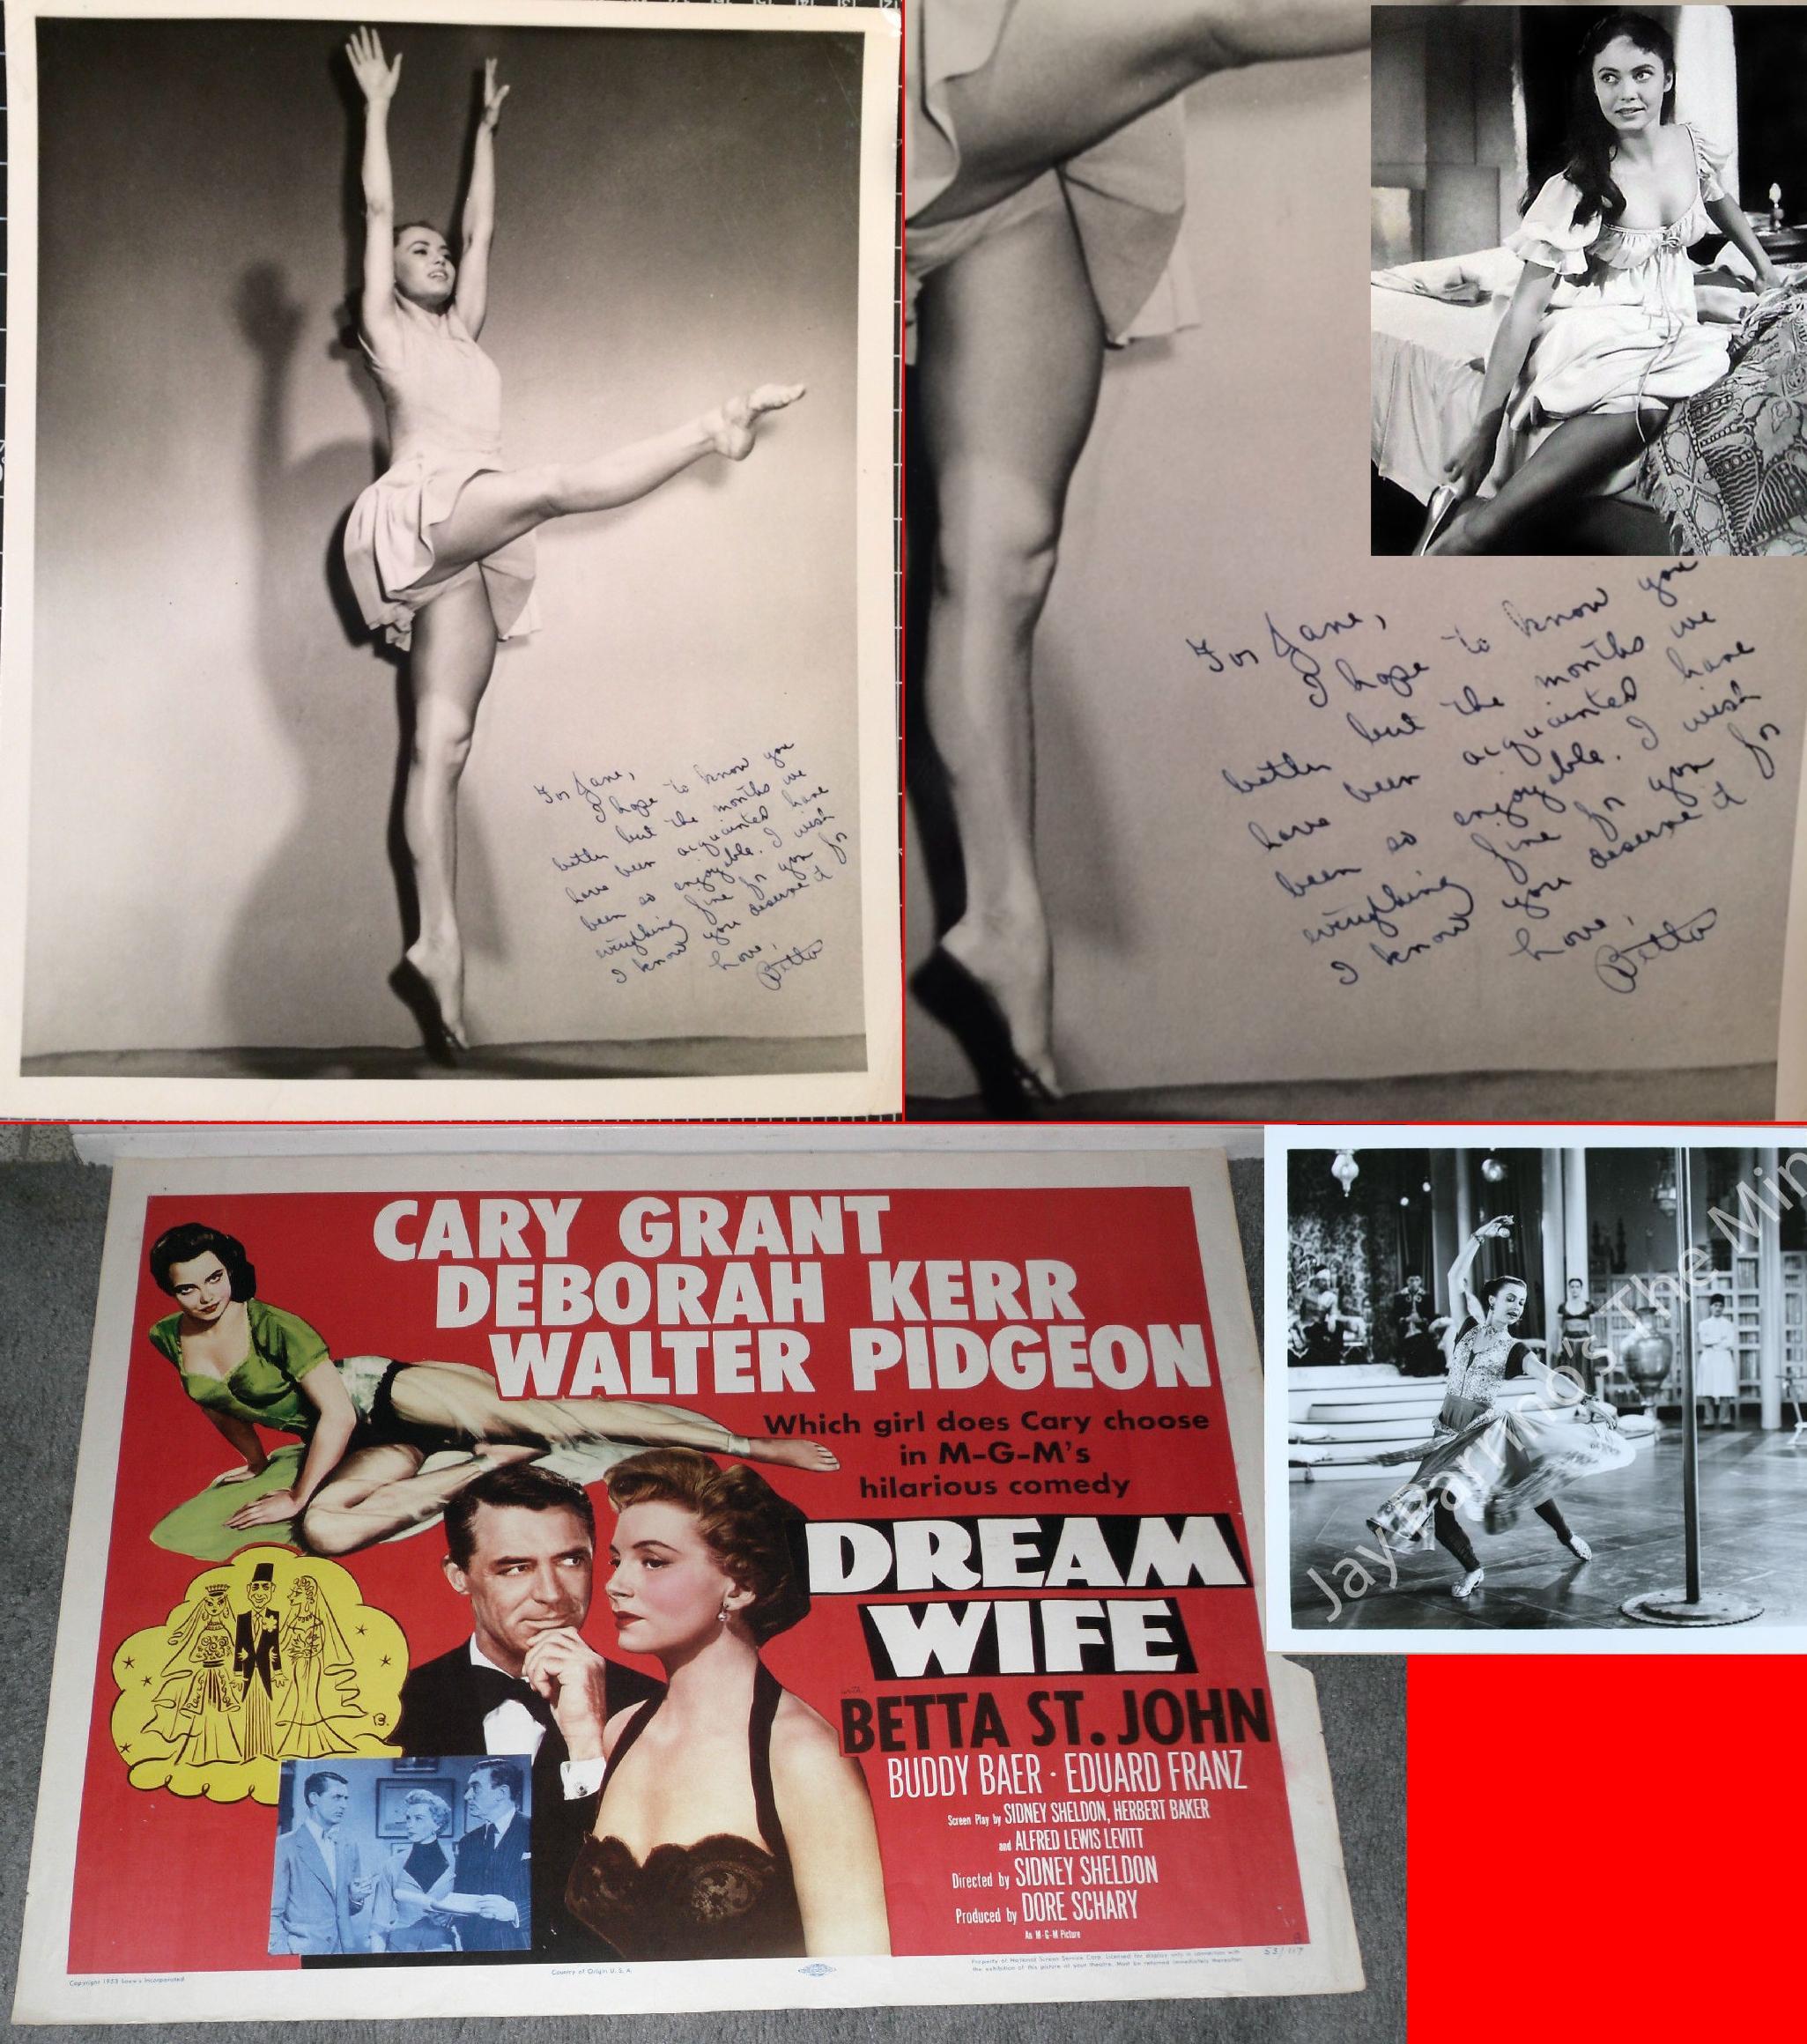 For Jane,
I hope to know you
better but the months we
have been acquainted have
been so enjoyable. I wish
everything fine for you for
I know you deserve it
Love,
Betta
For Jane,
I hope to know you
better but the months we
have been acquainted have
been so enjoyable. I wish
everything fine for you for
I know you deserve it
Love,
Betta
CARY GRANT
DEBORAH KERR
WALTER PIDGEON
Which girl does Cary choose
in M-G-M's
hilarious comedy
DREAM
WIFE
with
BETTA ST. JOHN
BUDDY BAER · EDUARD FRANZ
Screen Play by SIDNEY SHELDON, HERBERT BAKER
and ALFRED LEWIS LEVITT
Directed by SIDNEY SHELDON
Produced by DORE SCHARY
An M-G-M Picture
Copyright 1953 Loew's Incorporated
Country of Origin U. S. A.
Property of National Screen Service Corp. Licensed for display only in connection with
the exhibition of this picture at your theatre. Must be returned immediately thereafter.
53/117
Jay Parrino's The Min